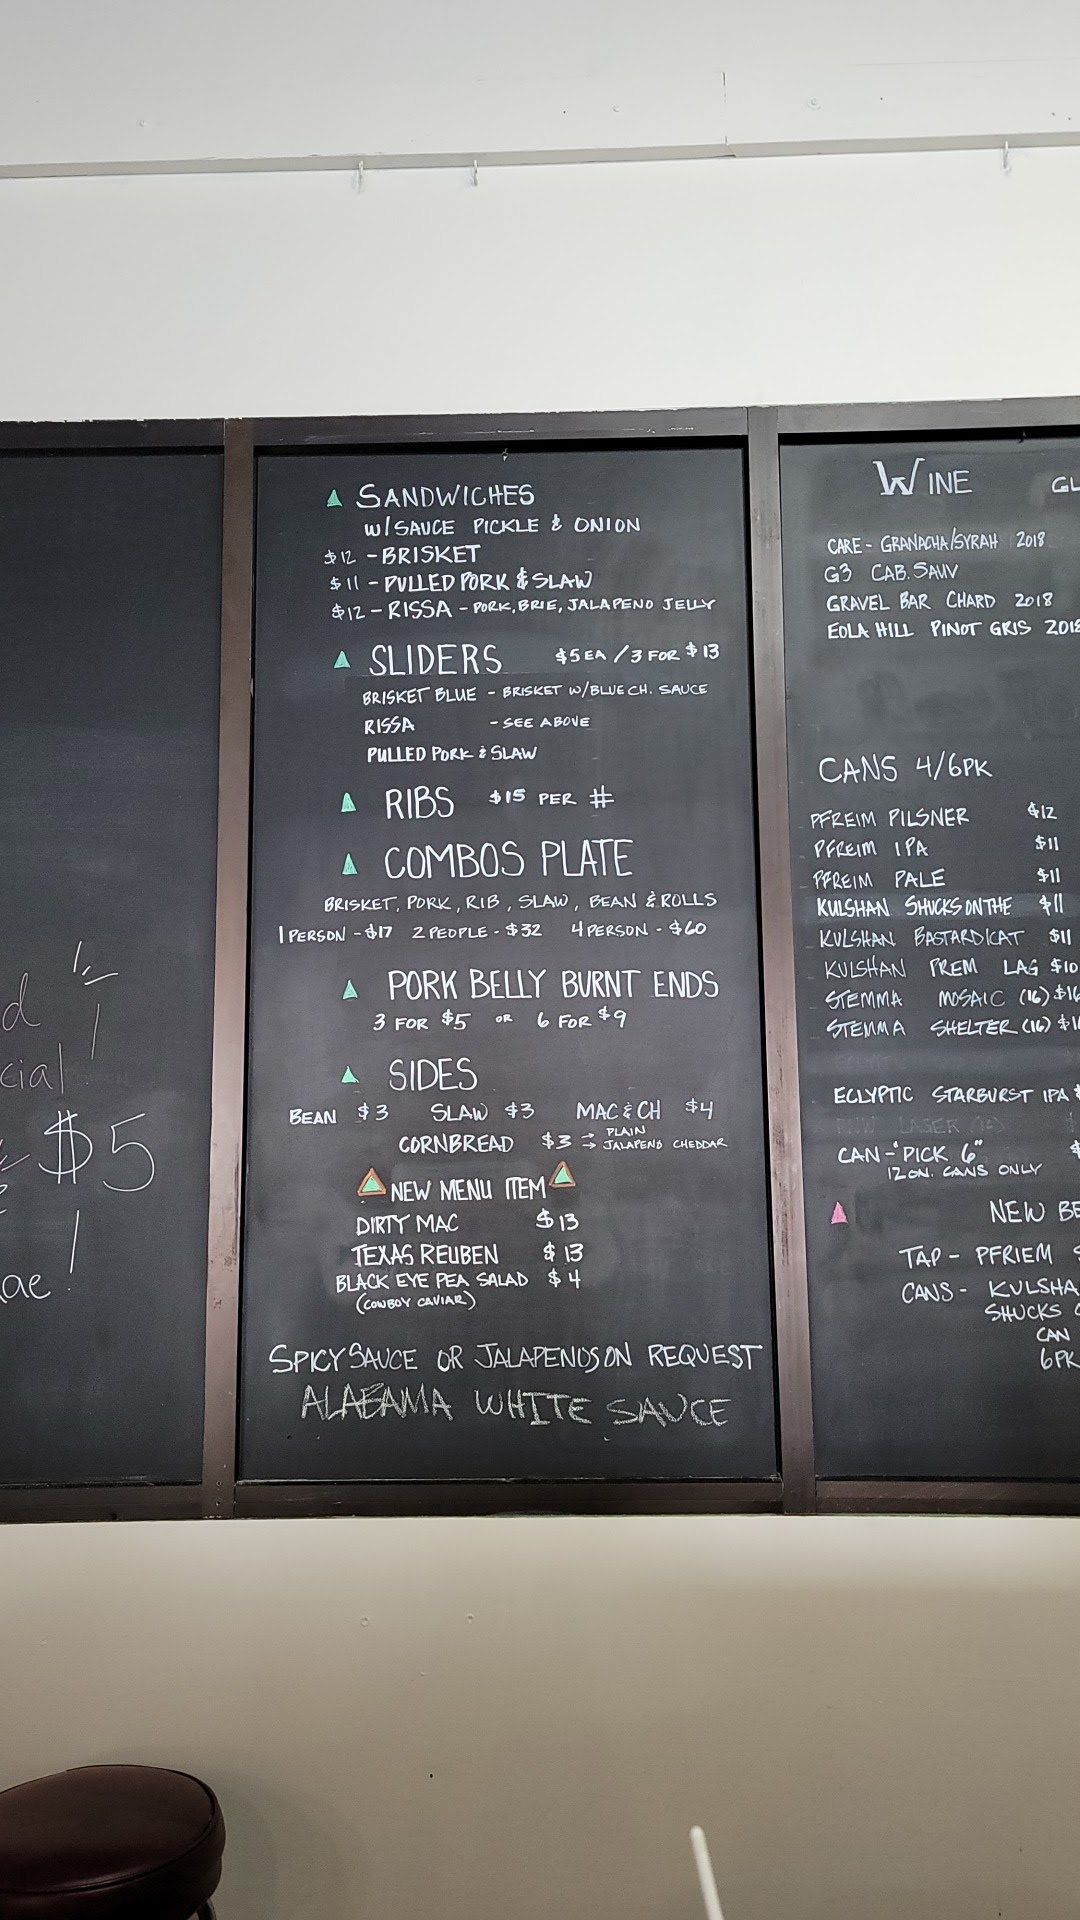 d
cial
$5
ae!
SANDWICHES
W/SAUCE PICKLE & ONION
$12 - BRISKET
$11 - PULLED PORK & SLAW
$12 - RISSA - PORK, BRIE, JALAPENO JELLY
SLIDERS $5 EA / 3 FOR $13
BRISKET BLUE - BRISKET W/BLUE CH. SAUCE
RISSA - SEE ABOVE
PULLED PORK & SLAW
RIBS $15 PER #
COMBOS PLATE
BRISKET, PORK, RIB, SLAW, BEAN & ROLLS
1 PERSON - $17 2 PEOPLE - $32 4 PERSON - $60
PORK BELLY BURNT ENDS
3 FOR $5 OR 6 FOR $9
SIDES
BEAN $3 SLAW $3 MAC & CH $4
CORNBREAD $3 → PLAIN
→ JALAPENO CHEDDAR
NEW MENU ITEM
DIRTY MAC $13
TEXAS REUBEN $13
BLACK EYE PEA SALAD $4
(COWBOY CAVIAR)
SPICY SAUCE OR JALAPENOS ON REQUEST
ALABAMA WHITE SAUCE
WINE GL
CARE - GRANACHA/SYRAH 2018
G3 CAB. SAUV
GRAVEL BAR CHARD 2018
EOLA HILL PINOT GRIS 2018
CANS 4/6PK
PFREIM PILSNER $12
PFREIM IPA $11
PFREIM PALE $11
KULSHAN SHUCKS ON THE $11
KULSHAN BASTARD KAT $11
KULSHAN PREM LAG $10
STEMMA MOSAIC (16) $16
STEMMA SHELTER (16) $1
ECLYPTIC STARBURST IPA $
CAN - "PICK 6"
12 ON. CANS ONLY
NEW BE
TAP - PFRIEM
CANS - KULSHA
SHUCKS
CAN
6PK